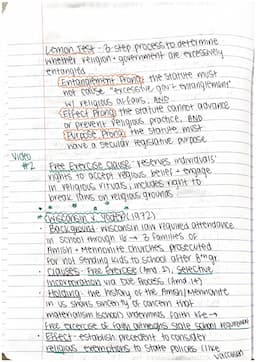 Lemon Test - 3-step process to determine
whether religion + government are excessively
entangled
Entanglement Prong: the statute must
not cause "excessive gov't entanglement"
w/ religious affairs, AND
Effect Prong: the statute cannot advance
or prevent religious practice, AND
Purpose Prong: the statute must
have a secular legislative purpose
Video
#2
Free Exercise Clause: reserves individuals'
rights to accept religious belief + engage
in religious rituals; includes right to
break laws on religious grounds
Wisconsin v. Yoder (1972)
• Background: Wisconsin law required attendance
in school through 16 → 3 families of
Amish + Mennonite churches prosecuted
for not sending kids to school after 8th gr.
• Clauses: Free Exercise (Amd. 1), Selective
Incorporation via Due Process (Amd. 14)
• Holding: the history of the Amish/Mennonite
in US shows sincerity of concern that
materialism (schools) undermines faith life →
free exercise of faith outweighs state school requirement
• Effect - establish precedent to consider
religious exemptions to state policies like
vaccination